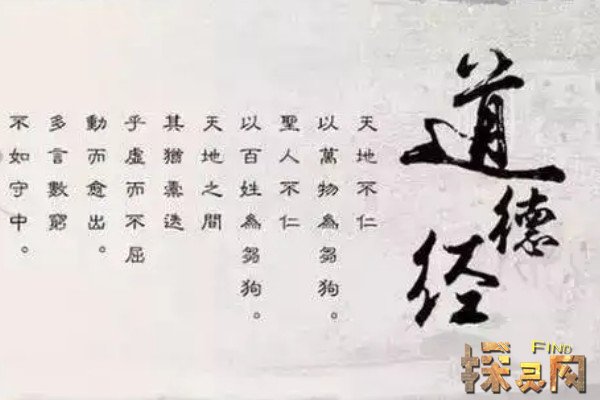 道德经
天地不仁
以萬物為芻狗。
聖人不仁
以百姓為芻狗。
天地之間
其猶橐迭
乎虛而不屈
動而愈出。
多言數窮
不如守中。
FIND
探灵网